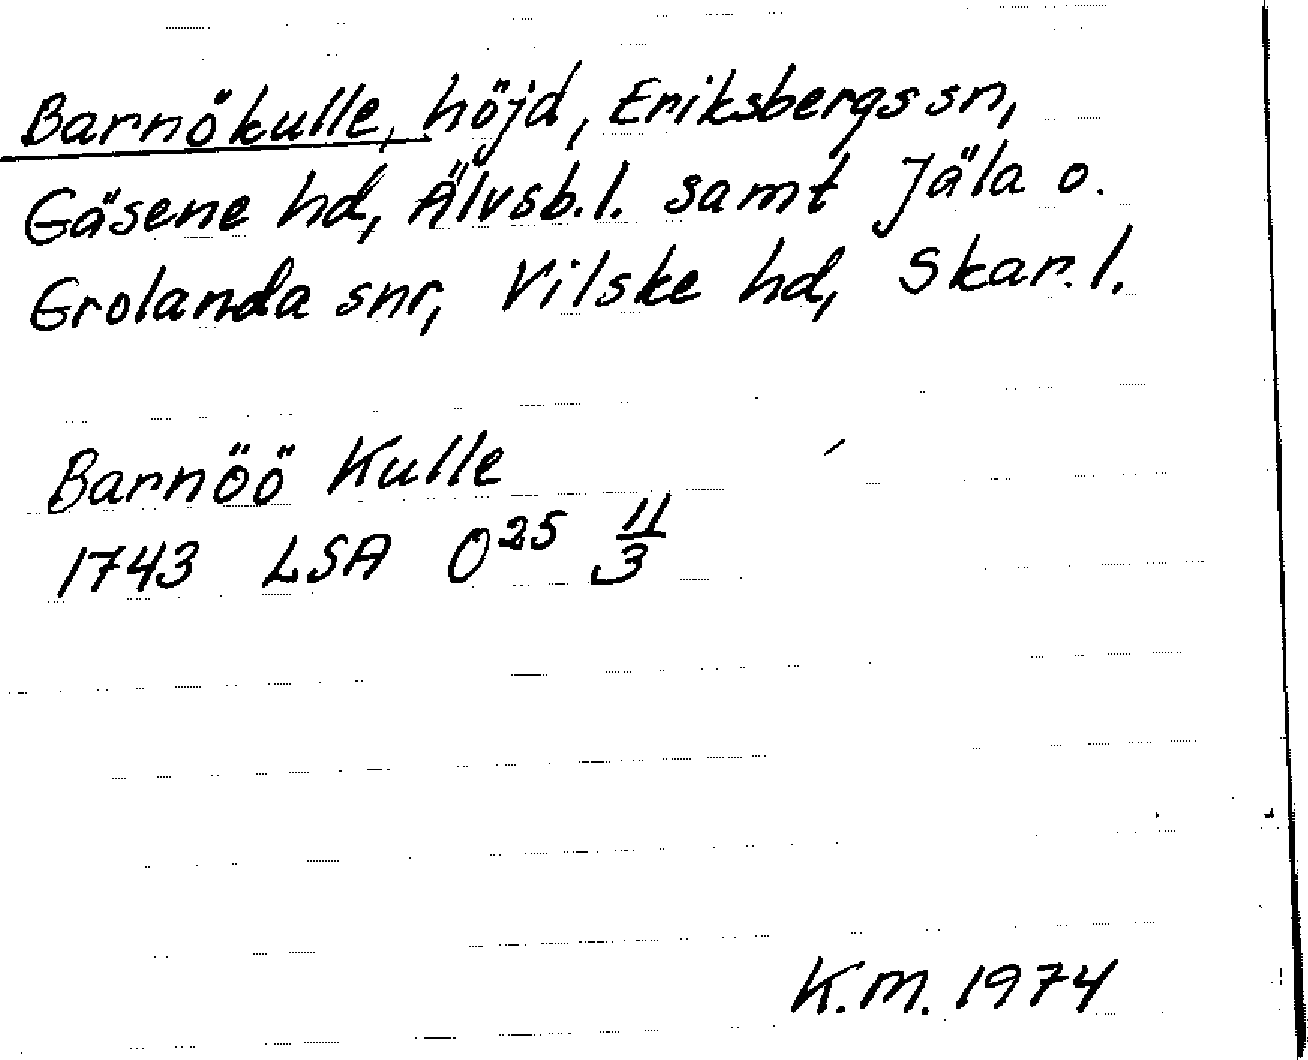 Barnökulle, höjd, Eriksbergs sn,
Gäsene hd, Älvsb.l. samt Jäla o.
Grolanda snr, Vilske hd, Skar.l.
Barnöö Kulle
1743 LSA O²⁵ 11/3
K.M. 1974